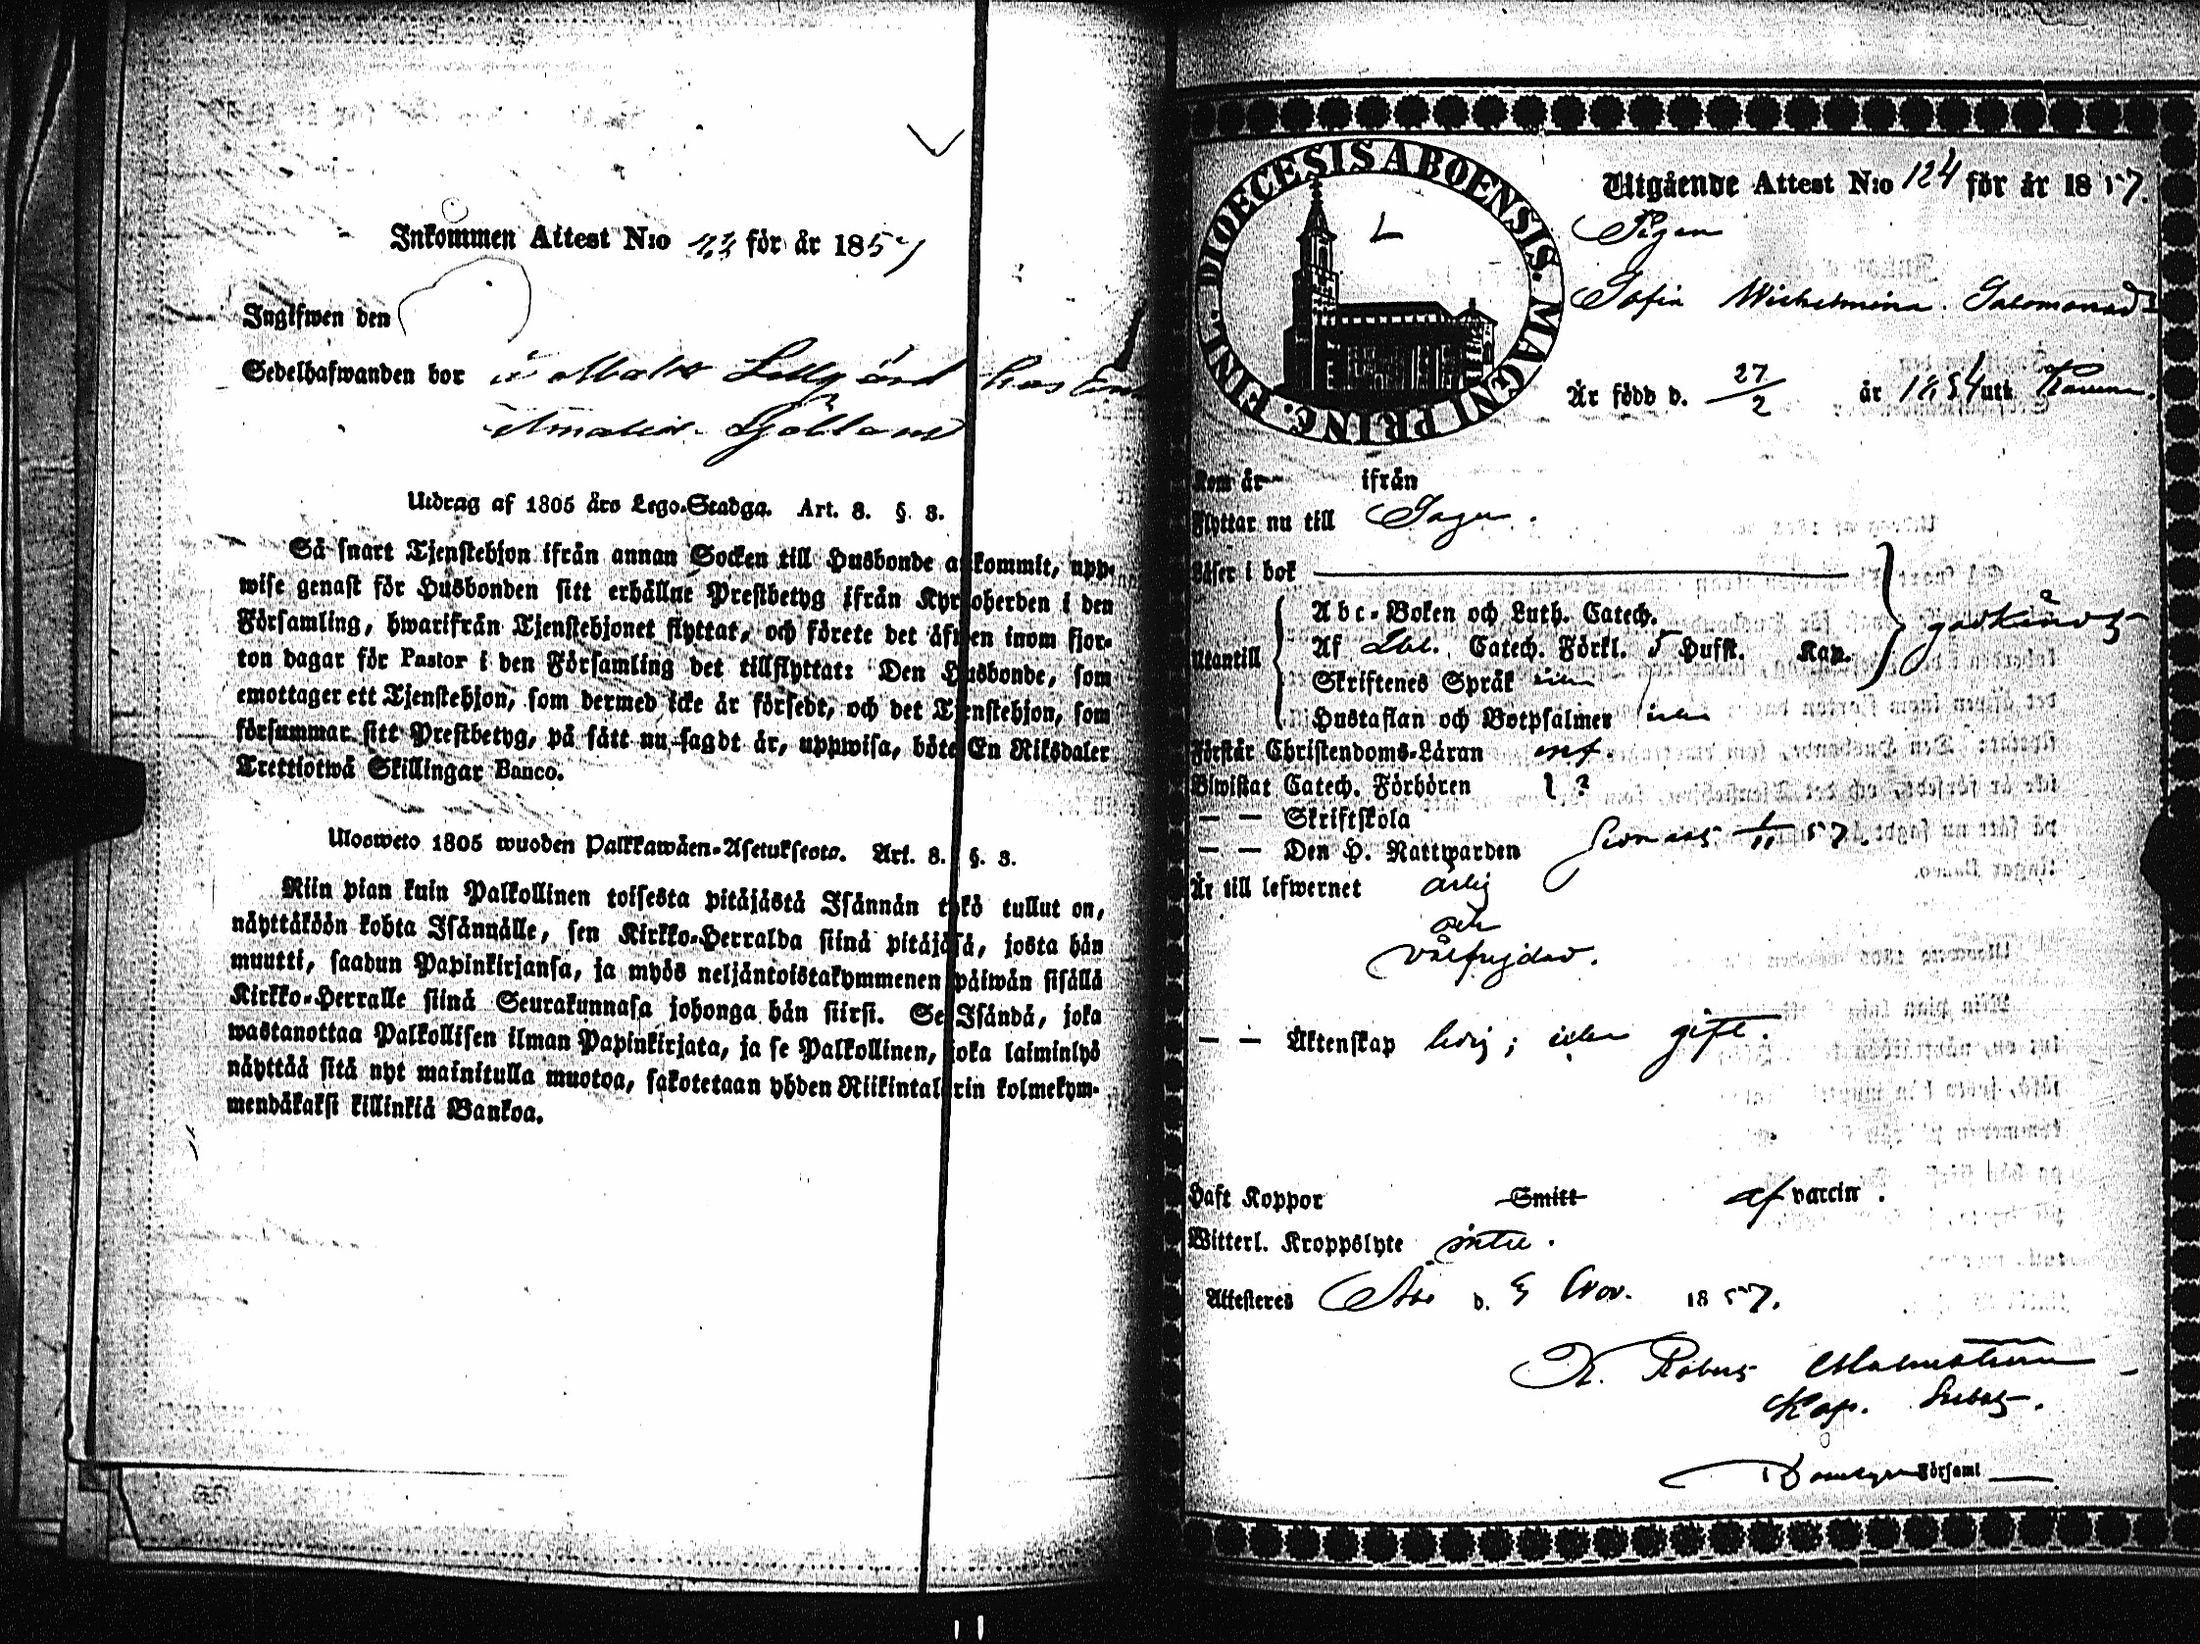 Inkommen Attest N:o 23 för år 1857
Ingifwen den
Sedelhafwanden bor i Lillgård hos
Amalia
Utdrag af 1805 års Lego-Stadga. Art. 8. §. 3.
Så snart Tjenstehjon ifrån annan Socken till Husbonde ankommit, upp-
wise genast för Husbonden sitt erhållne Prestbetyg ifrån Kyrkoherden i den
Församling, hwarifrån Tjenstehjonet flyttat, och förete det äfwen inom fjor-
ton dagar för Pastor i den Församling det tillflyttat: Den Husbonde, som
emottager ett Tjenstehjon, som dermed icke är försedt, och det Tjenstehjon, som
försummar sitt Prestbetyg, på sätt nu sagdt är, uppwisa, böte En Riksdaler
Trettiotwå Skillingar Banco.
Ulosweto 1805 wuoden Palkkawäen-Asetuksesta. Art. 8. §. 3.
Niin pian kuin Palkollinen toisesta pitäjästä Isännän tykö tullut on,
näyttäköön kohta Isännälle, sen Kirkko-Herralda siinä pitäjäsä, josta hän
muutti, saadun Papinkirjansa, ja myös neljäntoistakymmenen päiwän sisällä
Kirkko-Herralle siinä Seurakunnasa johonga hän siirsi. Se Isändä, joka
wastanottaa Palkollisen ilman Papinkirjata, ja se Palkollinen, joka laiminlyö
näyttää sitä nyt mainitulla muotoa, sakotetaan yhden Riikintalarin kolmekym-
mendäkaksi killinkiä Bankoa.
DIOECESIS ABOENSIS. MAGNI PRINC. FINL.
L
Utgående Attest N:o 124 för år 1857.
Pigan
Sofia Wilhelmina Salomonsd:r
Är född d. 27/2 år 1834 uti
Kom år ifrån
Flyttar nu till Sagu.
Läser i bok
Utantill
Abc-Boken och Luth. Catech.
Af Catech. Förkl. 5 Hufst. Kap.
Skriftenes Språk
Hustaflan och Botpsalmer
godkändt
Förstår Christendoms-Läran
Biwistat Catech. Förhören ?
— — Skriftskola
— — Den H. Nattwarden senast 1/11 57.
Är till lefwernet ärlig
och
välfrejdad.
— — Äktenskap ledig; icke gift.
Haft Koppor Smitt af vaccin.
Witterl. Kroppslyte intet.
Attesteres Åbo d. 5 Nov. 1857.
K. Robert Malmström
Kap. Subst.
Domkyrko Församl